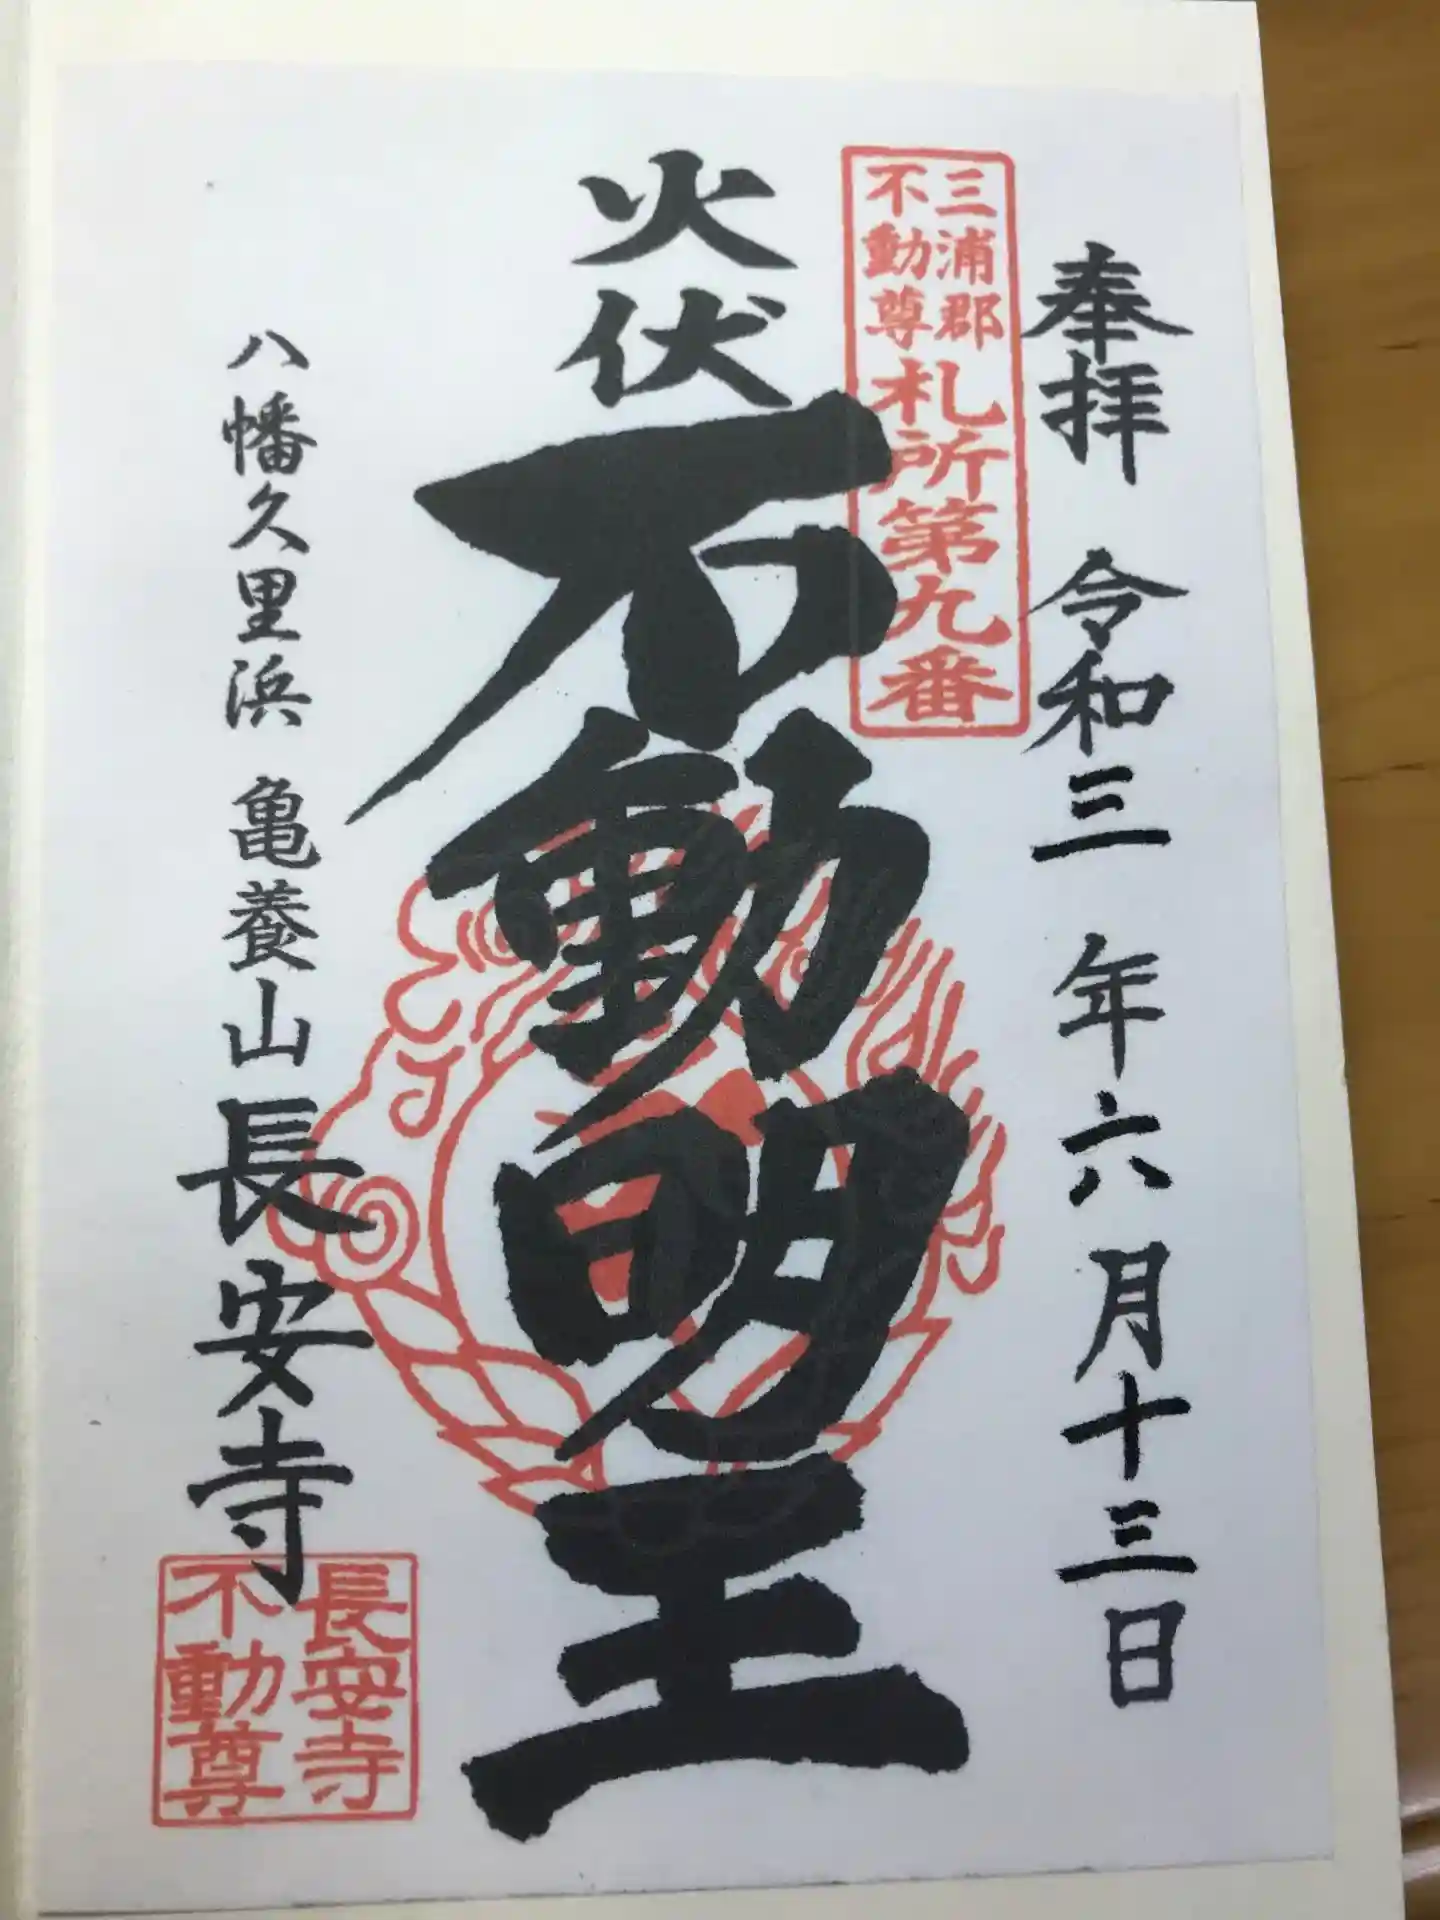 奉拝 令和三年六月十三日
三浦郡
不動尊
札所第九番
火伏
不動明王
八幡久里浜 亀養山 長安寺
長安寺
不動尊